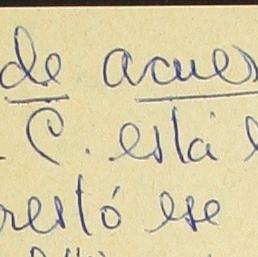 de acuer
C. está
restó ese